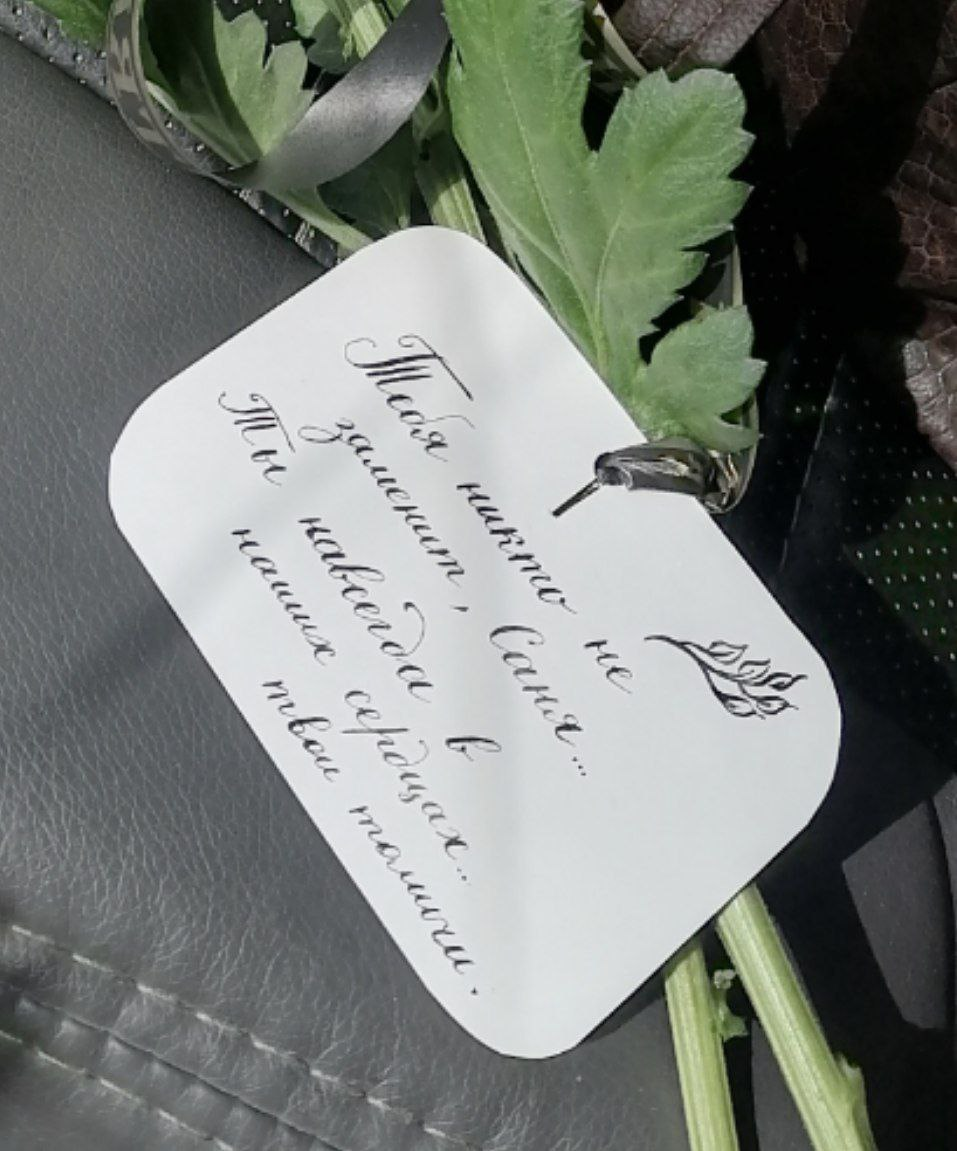 Тебя никто не
заменит, Саня...
Ты навсегда в
наших сердцах...
твои томичи.